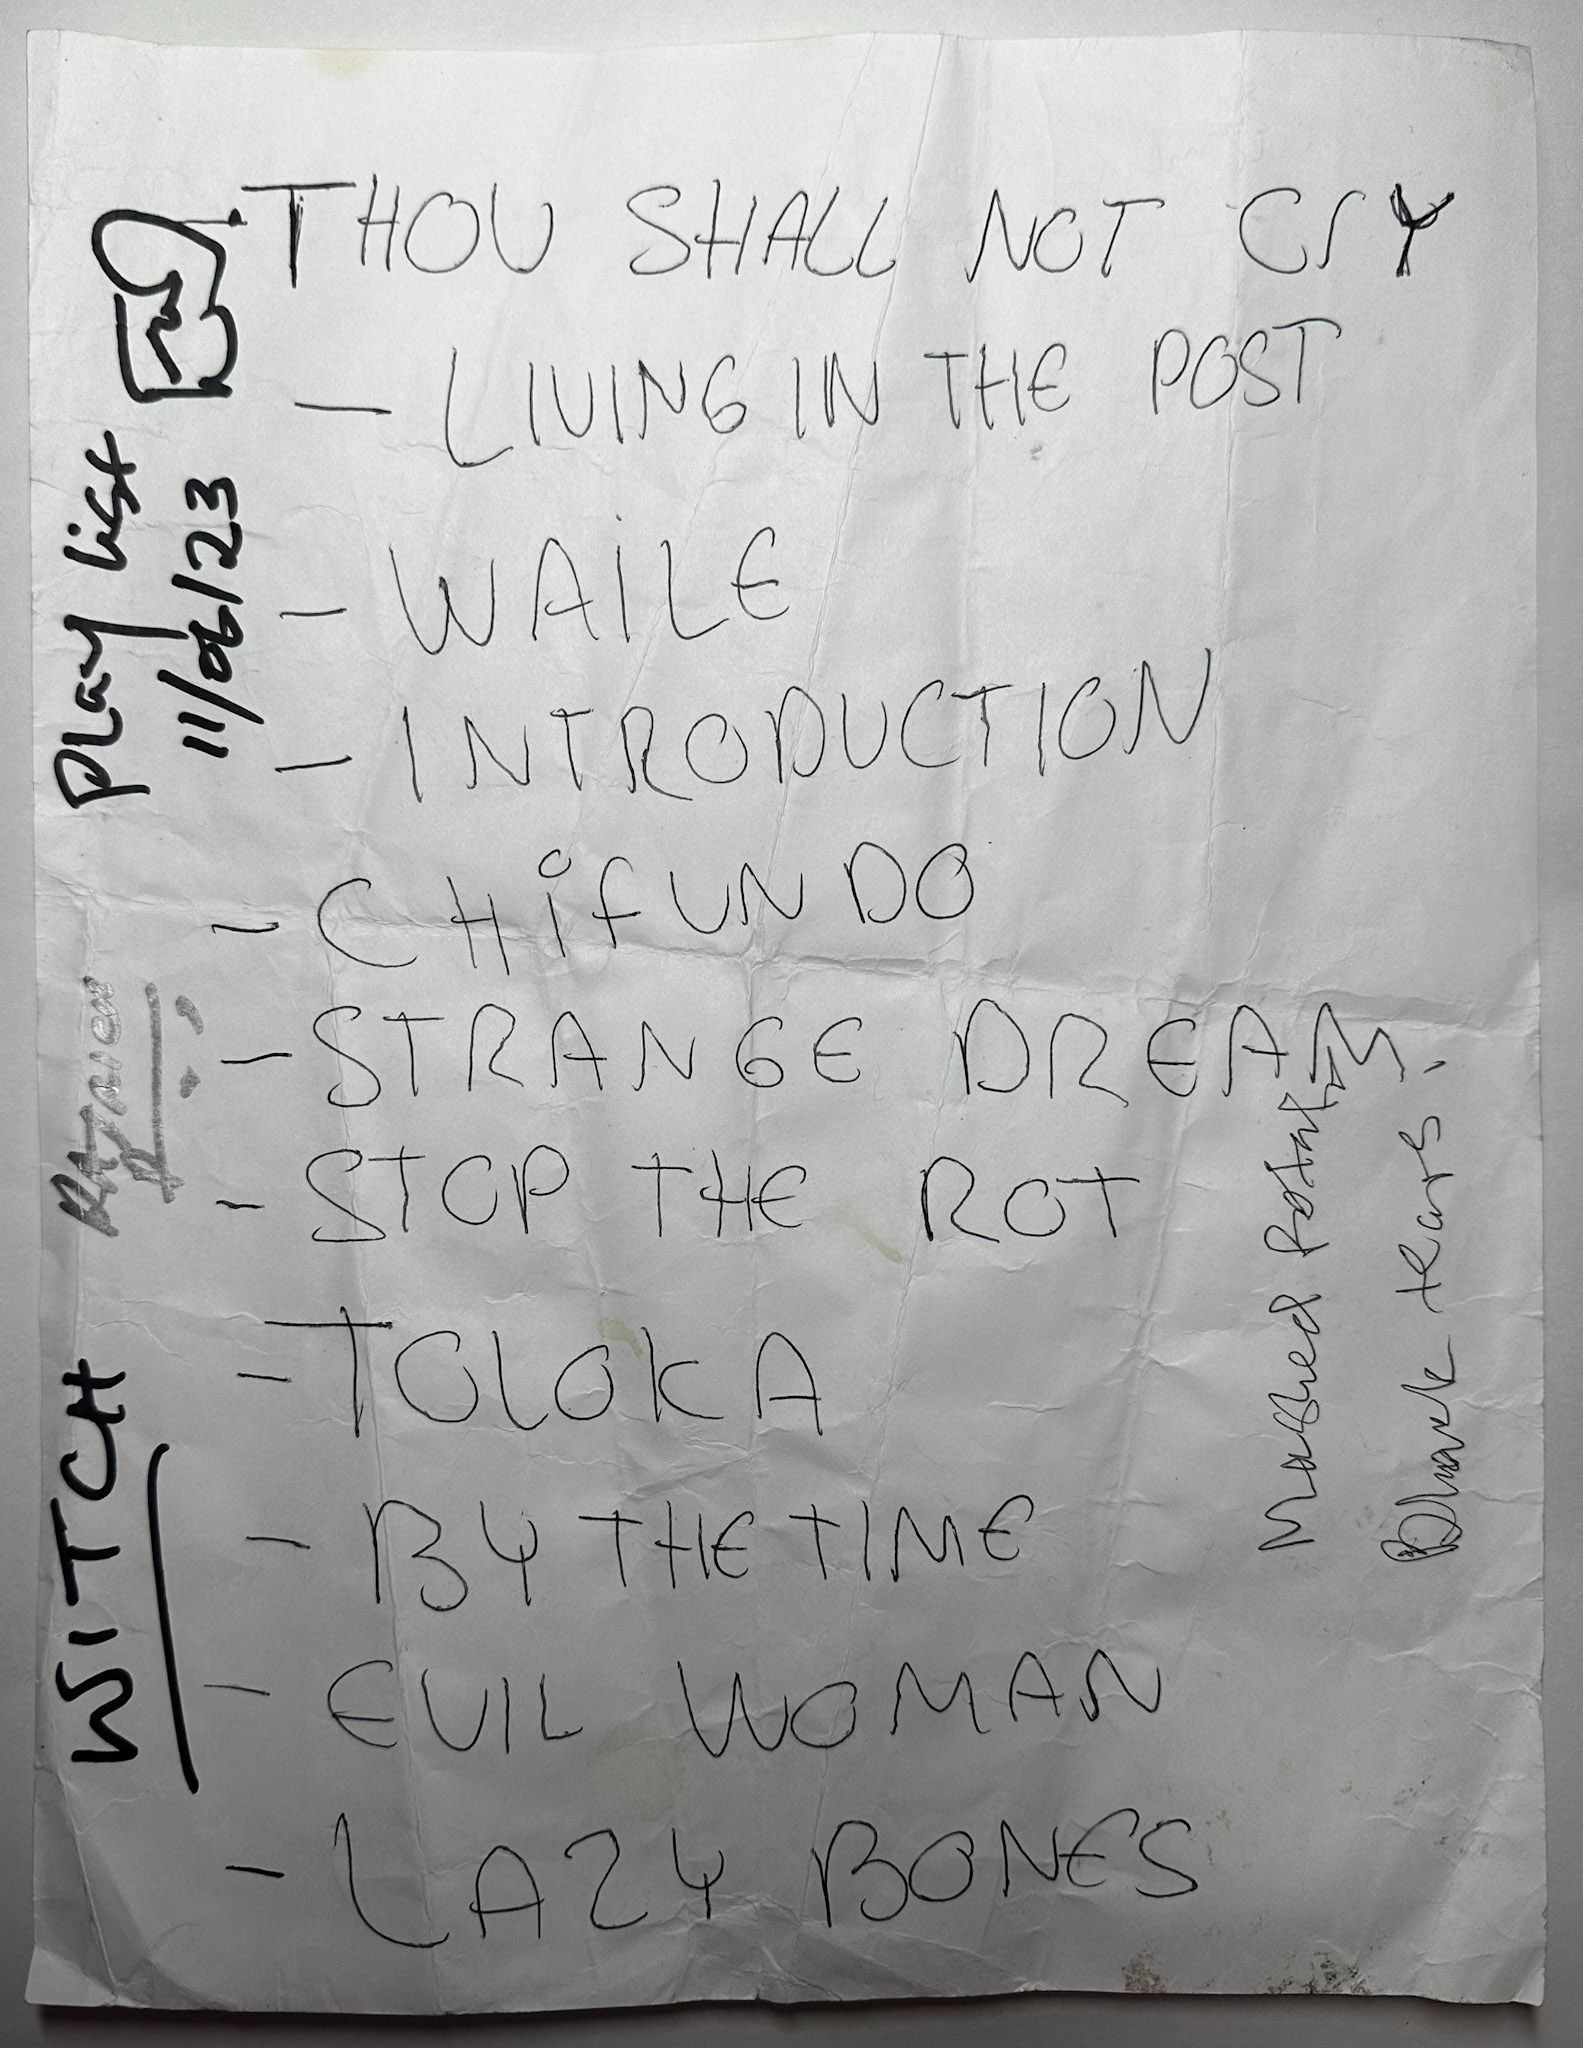 THOU SHALL NOT CrY
- LIVING IN THE POST
- WAILE
- INTRODUCTION
- CHiFUNDO
- STRANGE DREAM
- STOP THE ROT
- TOLOKA
- BY THE TIME
- EVIL WOMAN
- LAZY BONES
WITCH
Play list
11/06/23
Mashed Potato
tears.